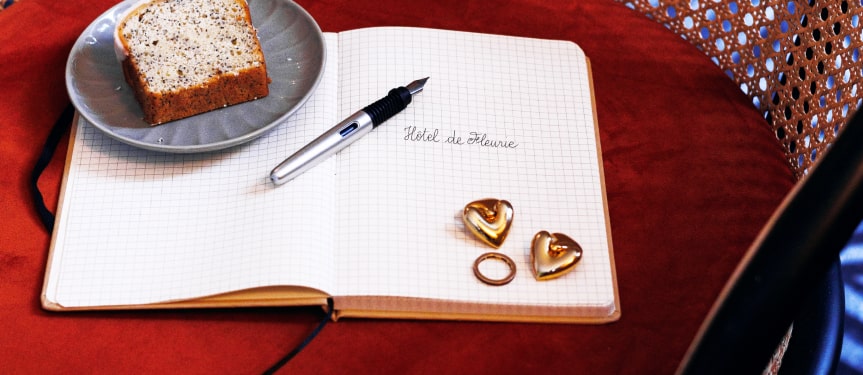 Hôtel de Fleurie